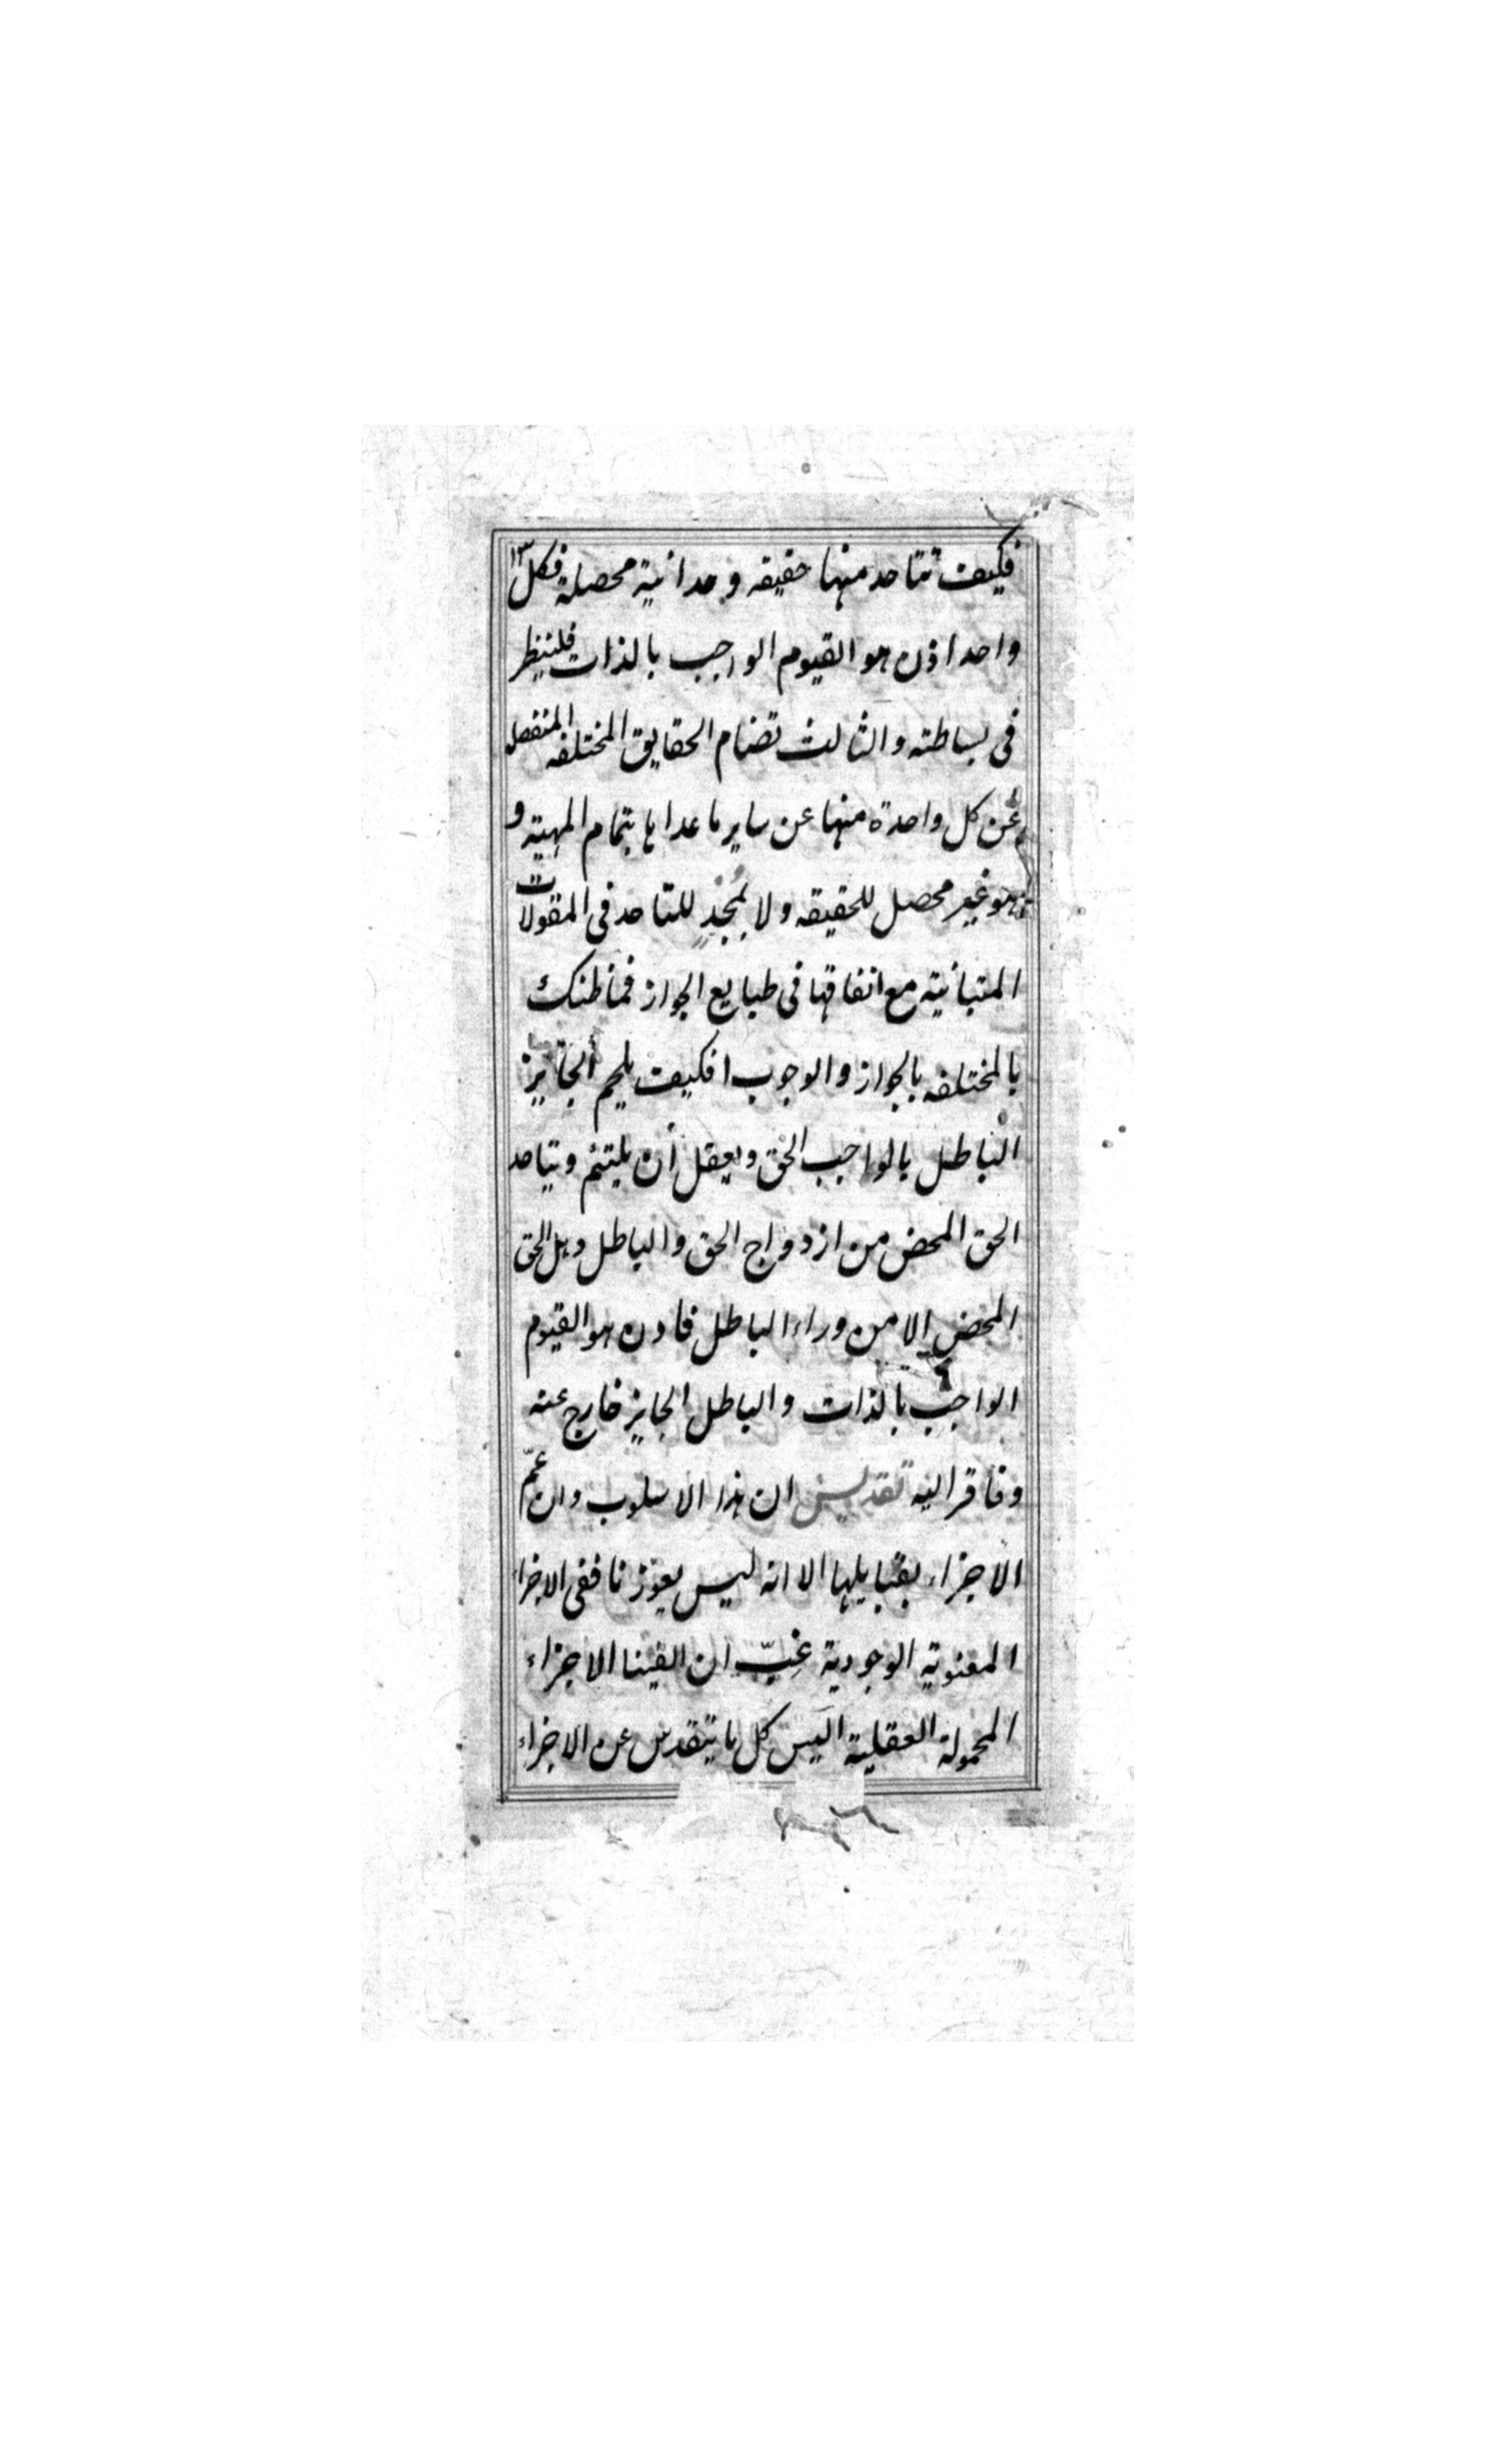 فكيف تتاحد منها حقيقه وحدانية محصلة فكل
واحد اذن هو القيوم الواجب بالذات فلينظر
فى بساطته والثالث تضام الحقايق المختلفه المنفصله
عن كل واحدة منها عن ساير ما عداها بتمام المهية و
هو غير محصل للحقيقه ولا بمجدٍ للتاحد فى المقولات
المتباينة مع اتفاقها فى طبايع الجواز فما ظنك
بالمختلفه بالجواز والوجوب افكيف يلحم الجايز
الباطل بالواجب الحق ويعقل أن يلتئم ويتاحد
الحق المحض من ازدواج الحق والباطل وهل الحق
المحض الا من وراء الباطل فاذن هو القيوم
الواجب بالذات والباطل الجايز خارج عنه
وفاقر اليه تقديس ان هذا الاسلوب وان عمّ
الاجزاء بقبايلها الا انه ليس يعوزنا ففى الاجزاء
المعنوية الوجودية غبّ ان الفينا الاجزاء
المحمولة العقلية اليس كل ما يتقدس عن الاجزاء